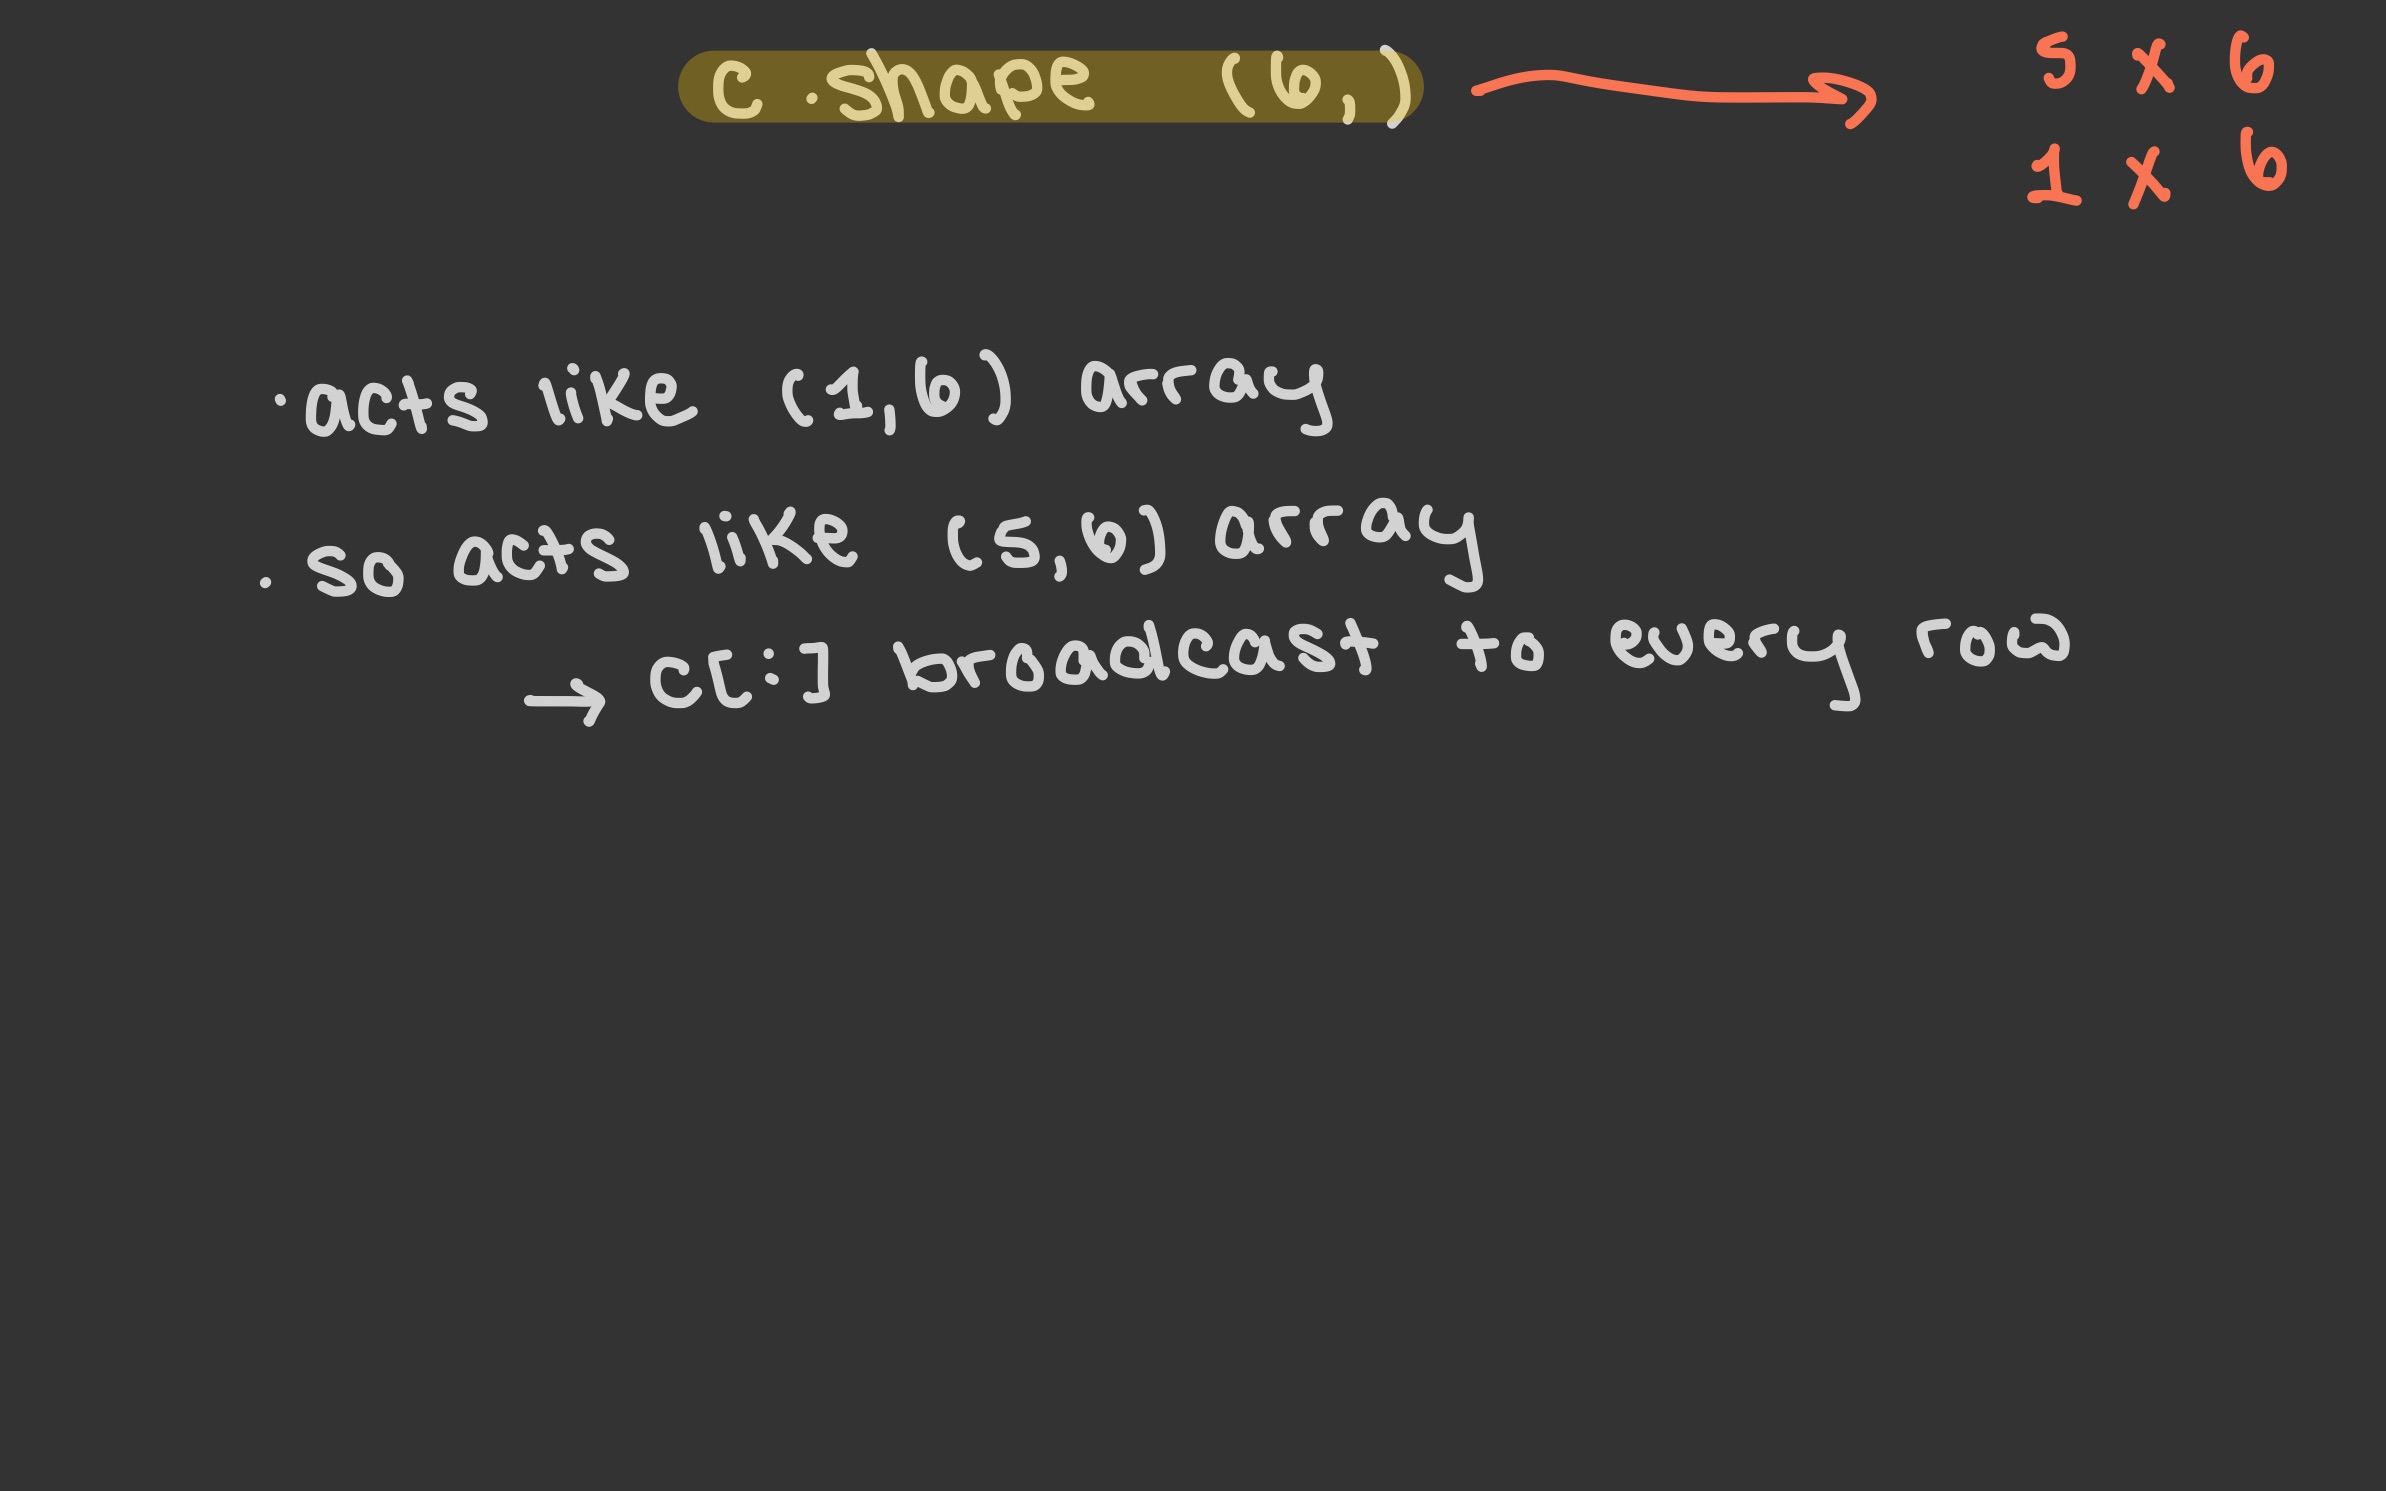 c.shape (6,)
5 x 6
1 x 6
· acts like (1,6) array
· so acts like (5,6) array
→ c[:] broadcast to every row